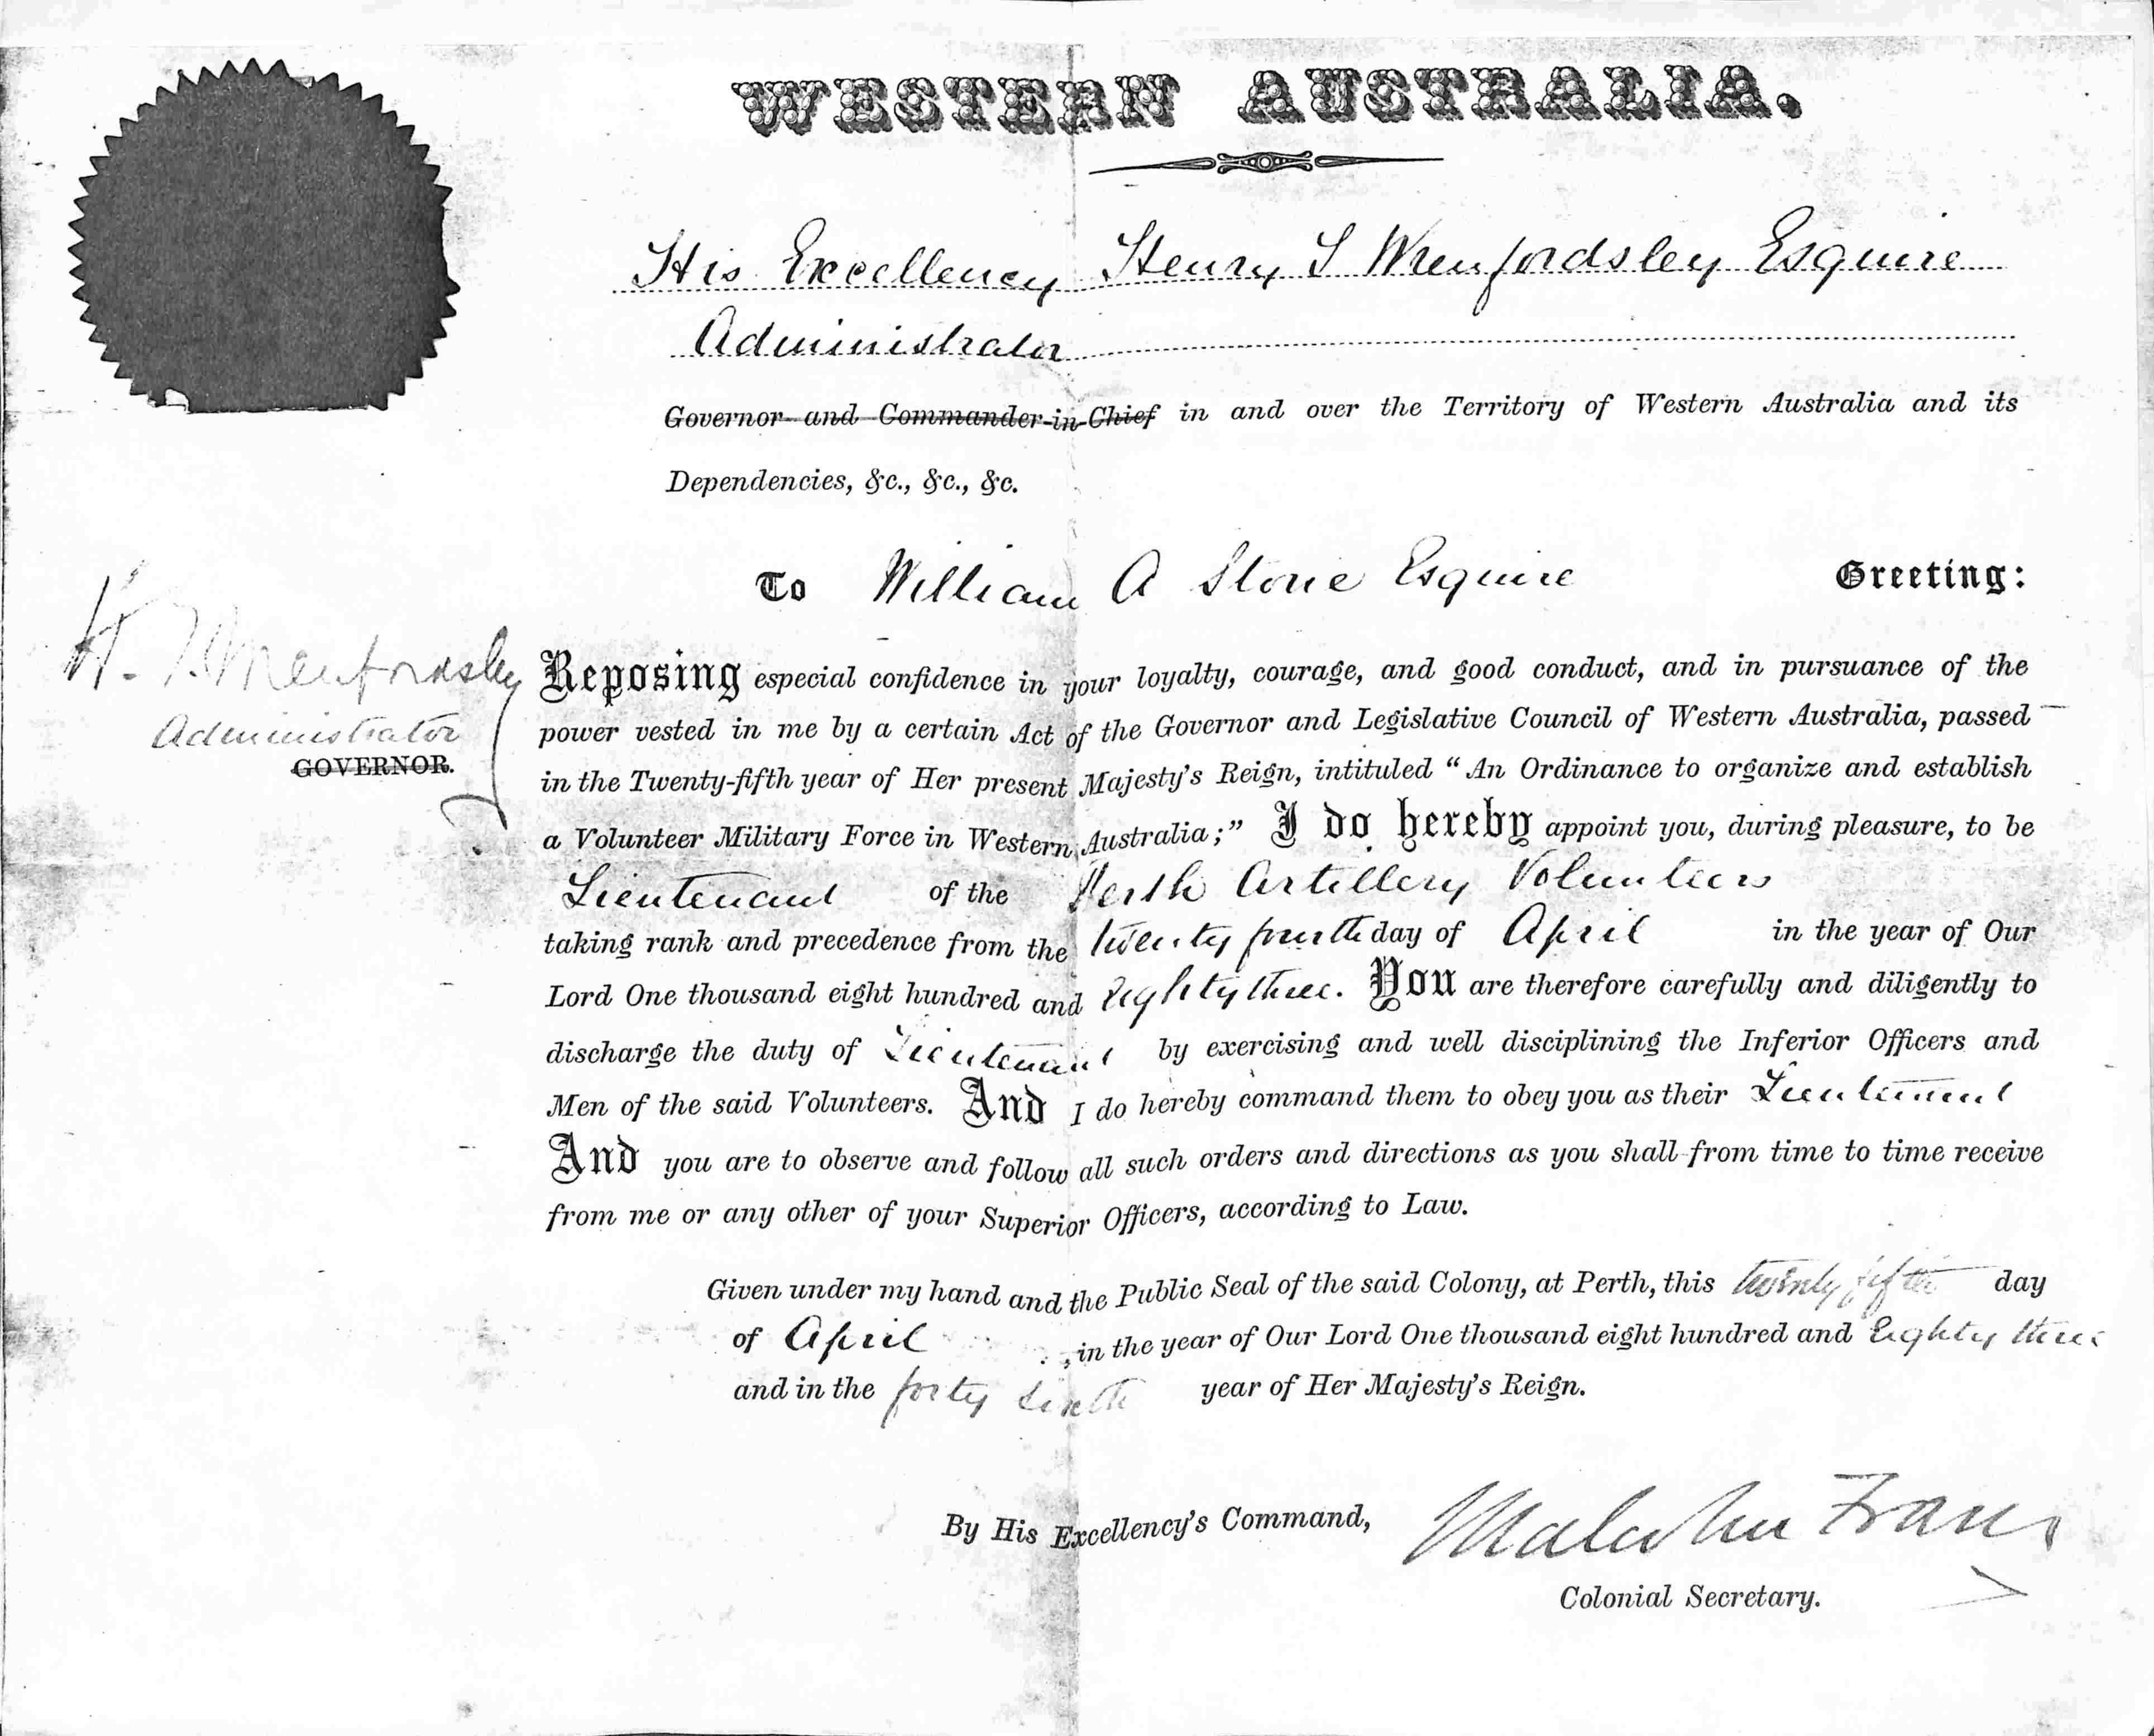 WESTERN AUSTRALIA.
His Excellency Henry T Wrenfordsley Esquire
Administrator
Governor and Commander-in-Chief in and over the Territory of Western Australia and its
Dependencies, &c., &c., &c.
To William A Stone Esquire Greeting:
H. T. Wrenfordsley
Administrator
GOVERNOR.
Reposing especial confidence in your loyalty, courage, and good conduct, and in pursuance of the
power vested in me by a certain Act of the Governor and Legislative Council of Western Australia, passed
in the Twenty-fifth year of Her present Majesty's Reign, intituled "An Ordinance to organize and establish
a Volunteer Military Force in Western Australia;" I do hereby appoint you, during pleasure, to be
Lieutenant of the Perth Artillery Volunteers
taking rank and precedence from the twenty fourth day of April in the year of Our
Lord One thousand eight hundred and Eighty three. You are therefore carefully and diligently to
discharge the duty of Lieutenant by exercising and well disciplining the Inferior Officers and
Men of the said Volunteers. And I do hereby command them to obey you as their Lieutenant
And you are to observe and follow all such orders and directions as you shall from time to time receive
from me or any other of your Superior Officers, according to Law.
Given under my hand and the Public Seal of the said Colony, at Perth, this twenty fifth day
of April, in the year of Our Lord One thousand eight hundred and Eighty three
and in the forty sixth year of Her Majesty's Reign.
By His Excellency's Command, Malcolm Fraser
Colonial Secretary.